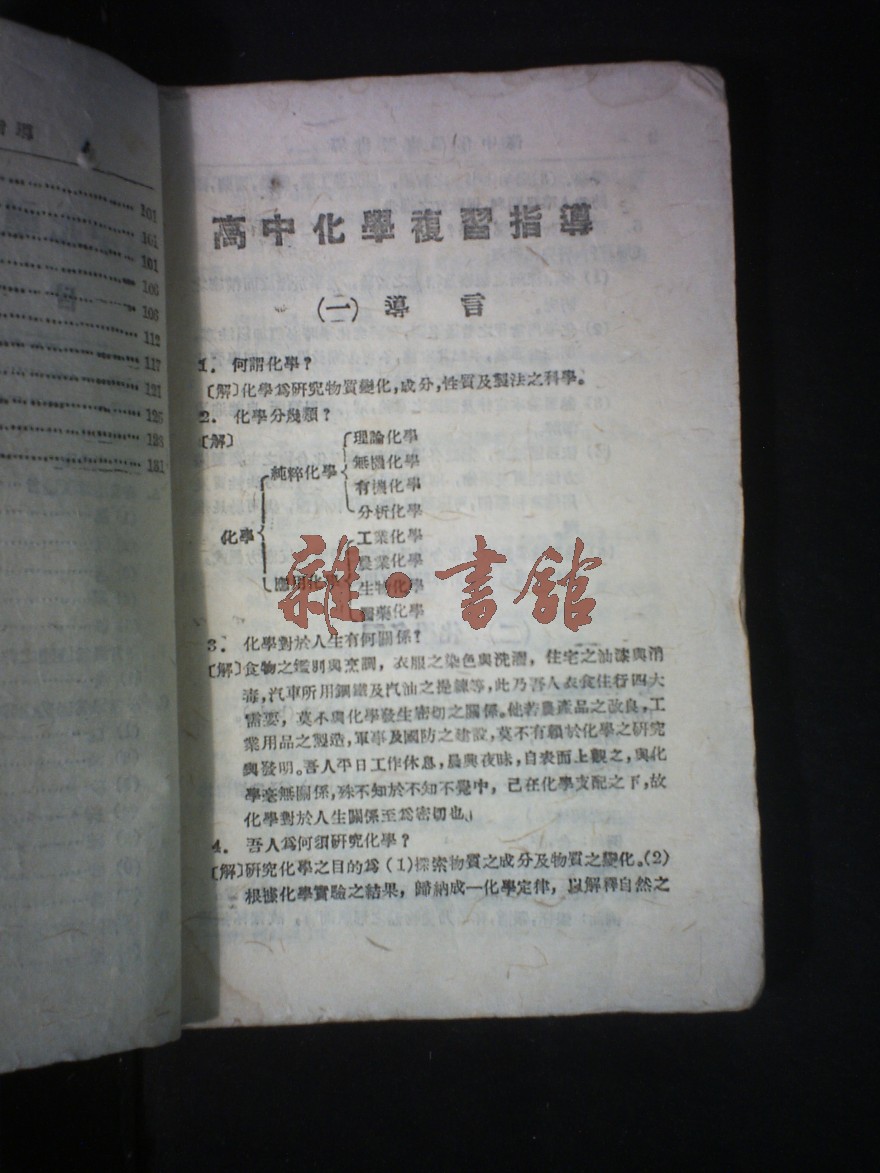 101
101
106
106
112
117
121
126
128
131
高中化學複習指導
(一) 導言
1. 何謂化學?
〔解〕化學爲研究物質變化,成分,性質及製法之科學。
2. 化學分幾類?
〔解〕
理論化學
無機化學
純粹化學
有機化學
分析化學
化學
工業化學
農業化學
應用化學
生物化學
醫藥化學
雜·書館
3. 化學對於人生有何關係?
〔解〕食物之鑑別與烹調,衣服之染色與洗濯,住宅之油漆與消
毒,汽車所用鋼鐵及汽油之提鍊等,此乃吾人衣食住行四大
需要,莫不與化學發生密切之關係。他若農產品之改良,工
業用品之製造,軍事及國防之建設,莫不有賴於化學之研究
與發明。吾人平日工作休息,晨興夜昧,自表面上觀之,與化
學毫無關係,殊不知於不知不覺中,己在化學支配之下,故
化學對於人生關係至爲密切也。
4. 吾人爲何須研究化學?
〔解〕研究化學之目的爲(1)探索物質之成分及物質之變化。(2)
根據化學實驗之結果,歸納成一化學定律,以解釋自然之